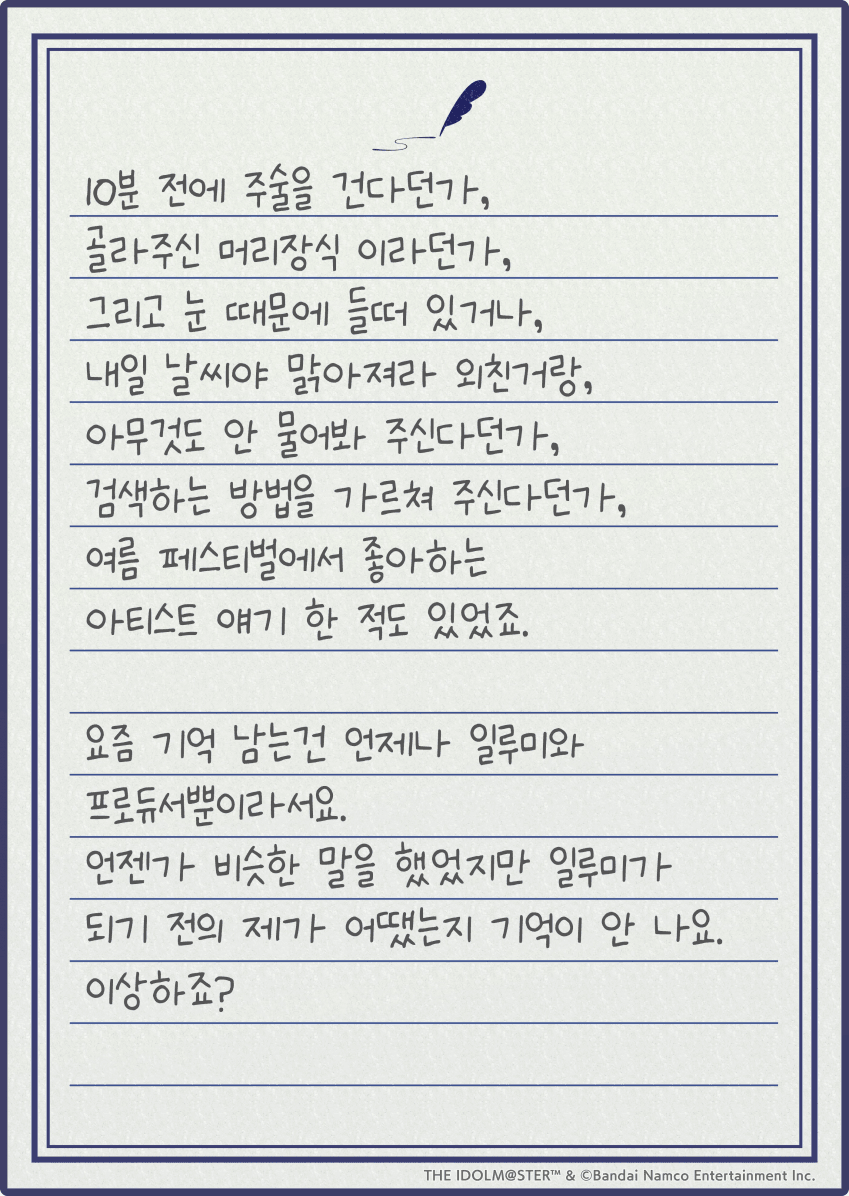 10분 전에 주술을 건다던가,
골라주신 머리장식 이라던가,
그리고 눈 때문에 들떠 있거나,
내일 날씨야 맑아져라 외친거랑,
아무것도 안 물어봐 주신다던가,
검색하는 방법을 가르쳐 주신다던가,
여름 페스티벌에서 좋아하는
아티스트 얘기 한 적도 있었죠.
요즘 기억 남는건 언제나 일루미와
프로듀서뿐이라서요.
언젠가 비슷한 말을 했었지만 일루미가
되기 전의 제가 어땠는지 기억이 안 나요.
이상하죠?
THE IDOLM@STER™ & ©Bandai Namco Entertainment Inc.